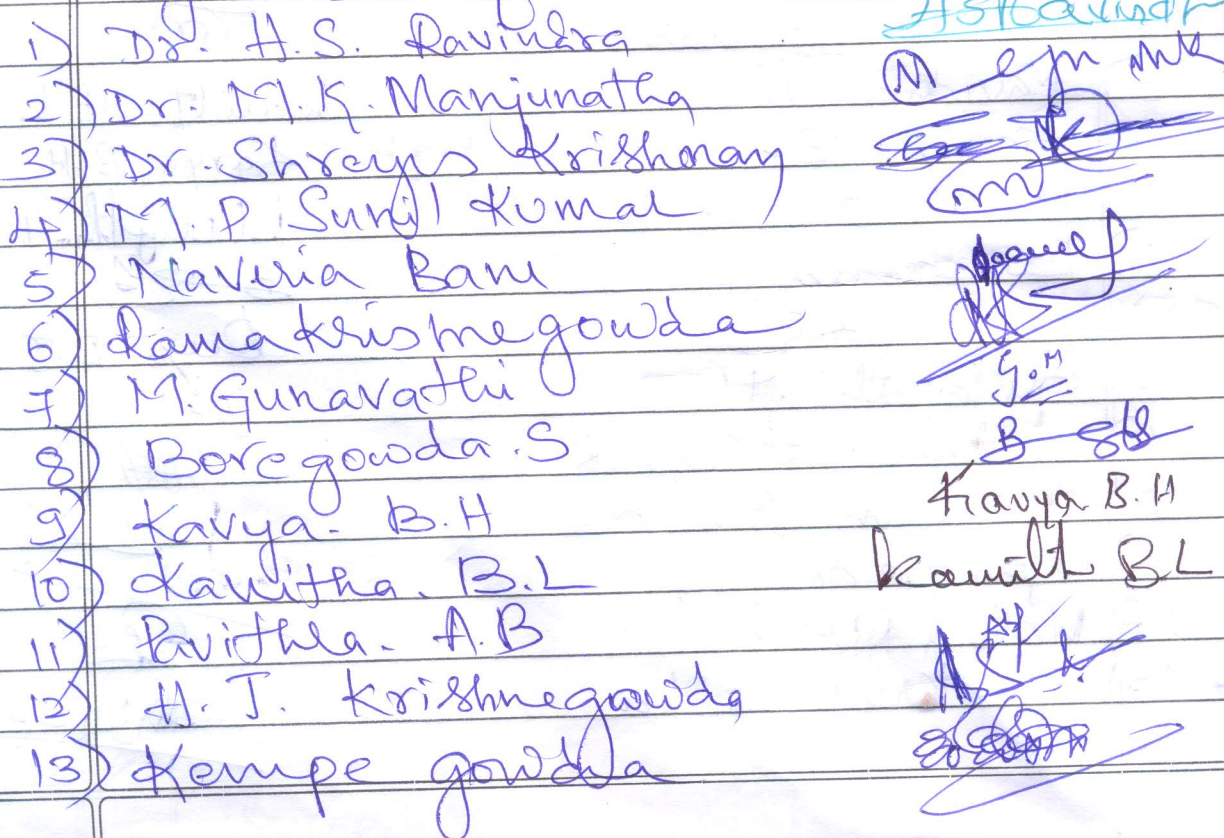 1) Dr. H.S. Ravindra
2) Dr. M.K. Manjunatha
3) Dr. Shreyas Krishnan
4) M.P Sunil Kumar
5) Naveria Banu
6) Ramakrishnegowda
7) M. Gunavathi G.M
8) Boregowda.S
9) Kavya. B.H Kavya B.H
10) Kavitha. B.L Kavith BL
11) Pavithra. A.B
12) H.J. Krishnegowda
13) Kempe gowda